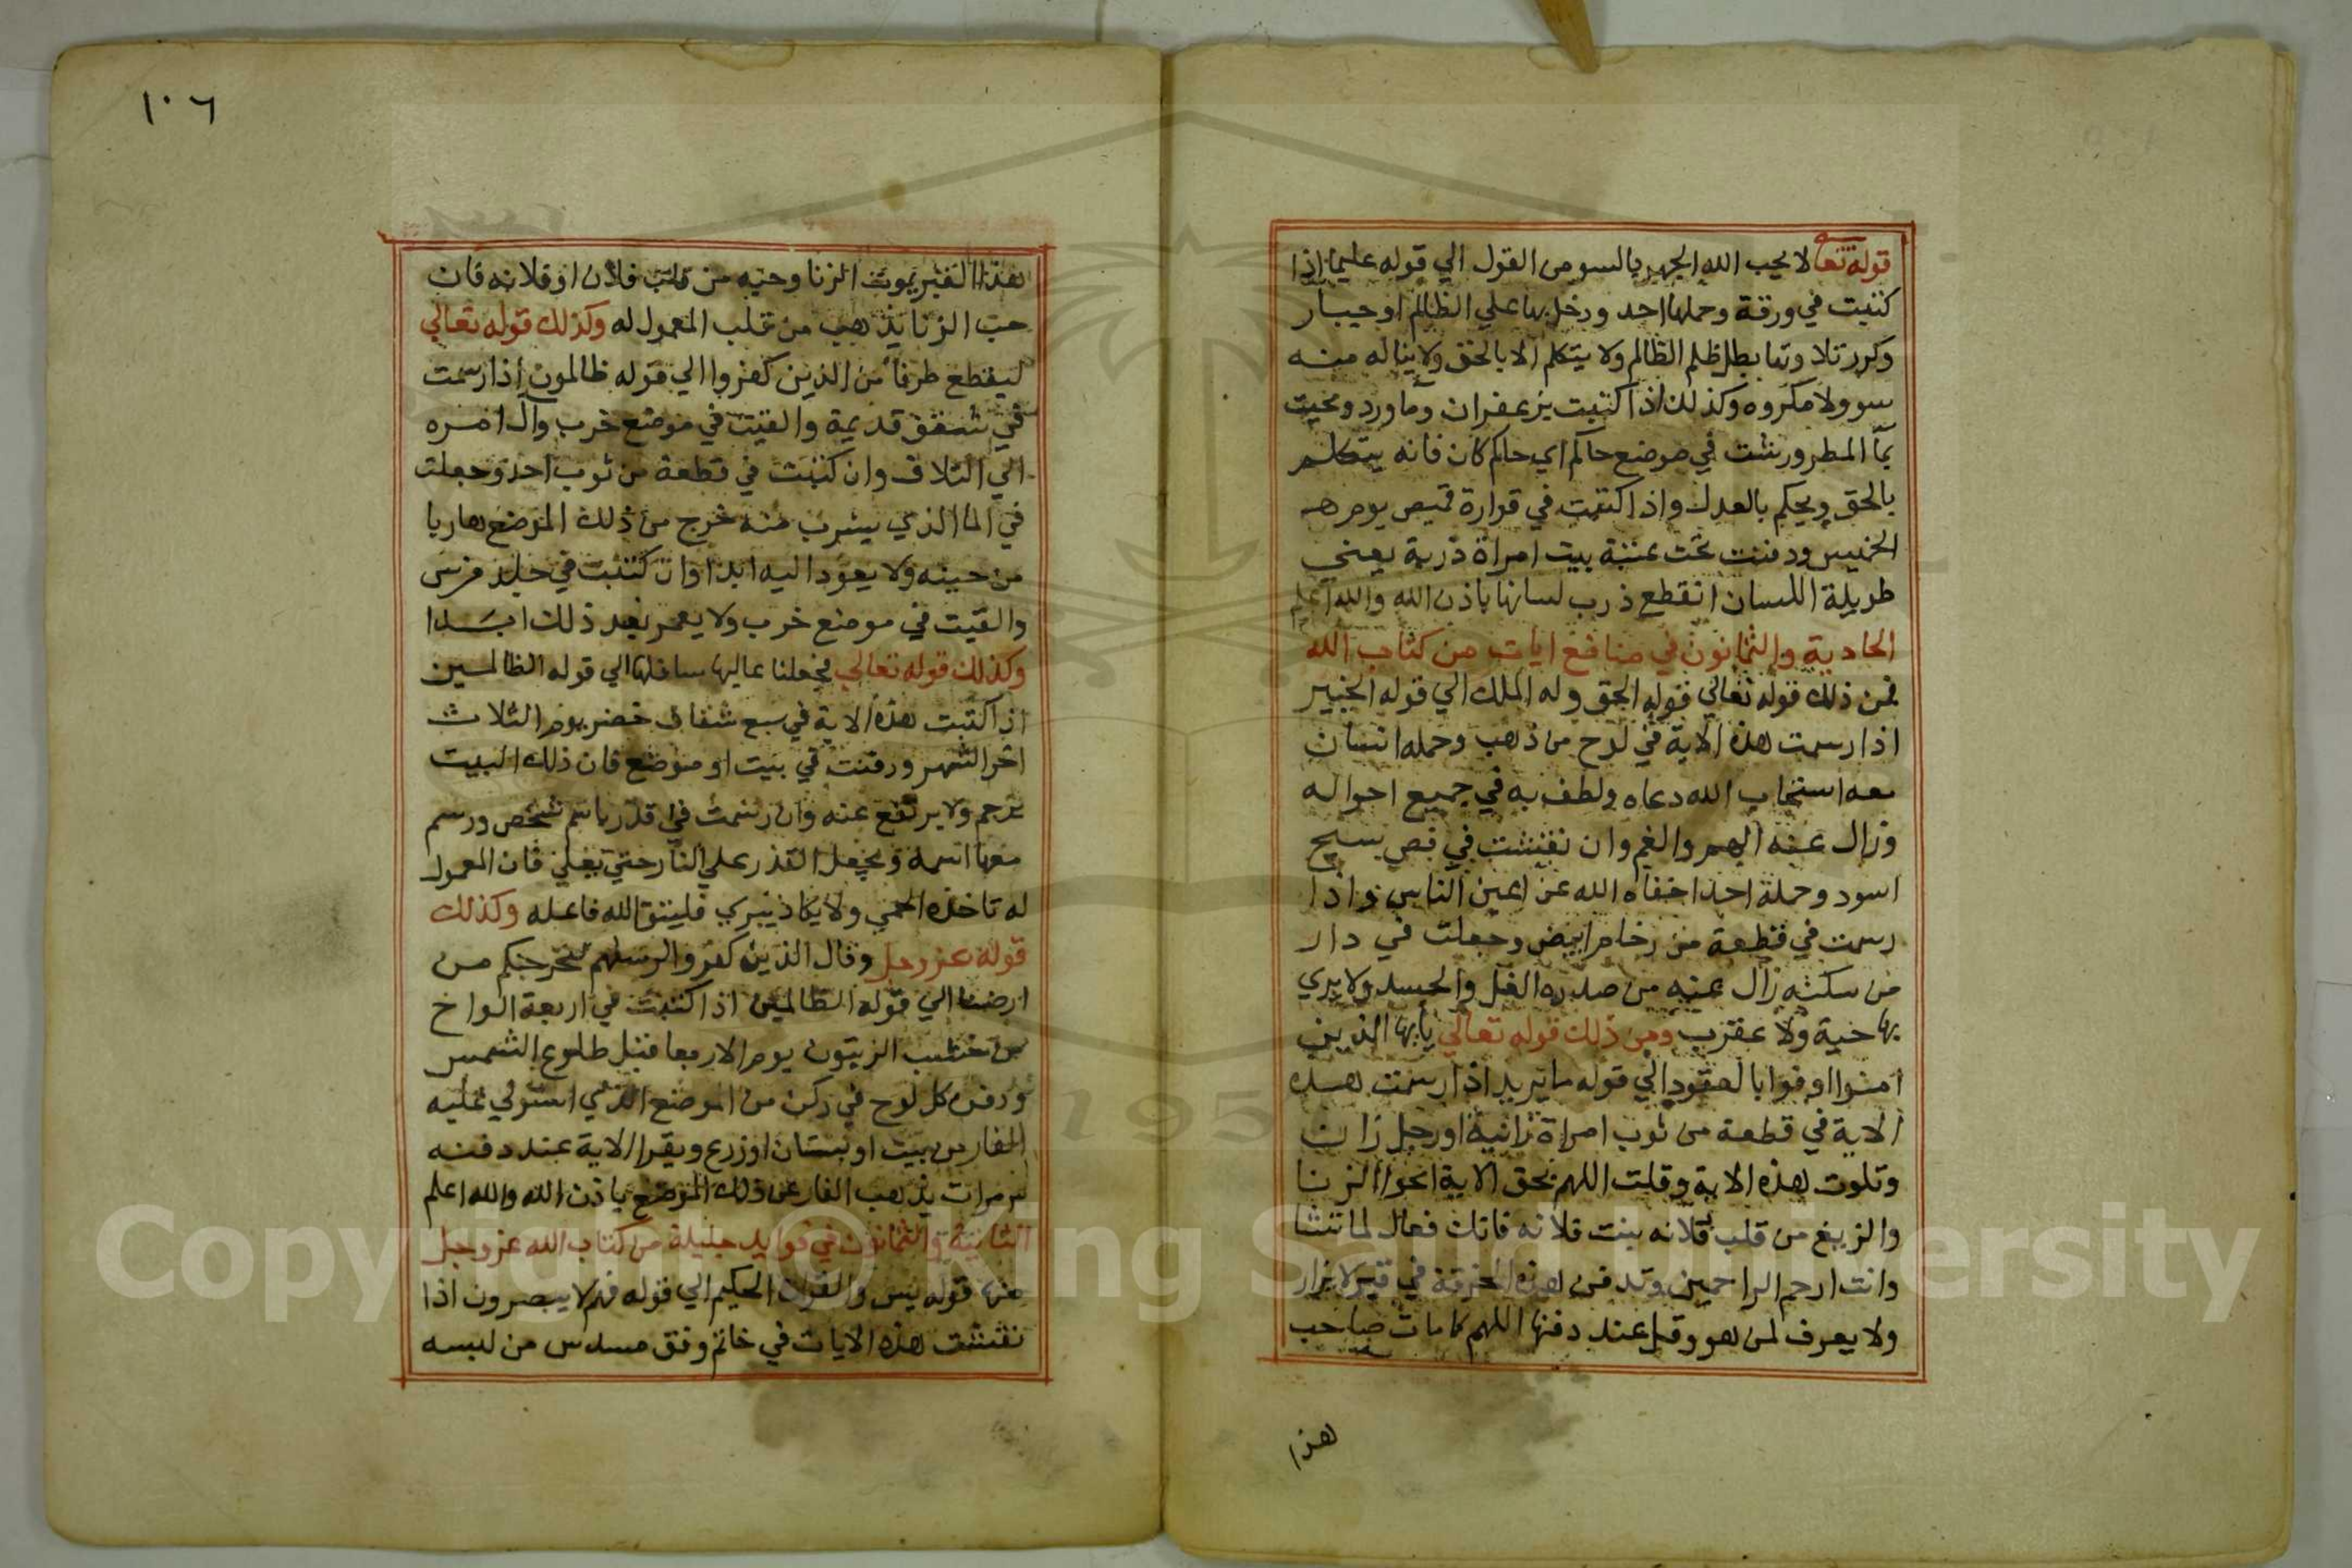 قوله تعا لا يحب الله الجهر بالسو من القول الي قوله عليما اذا
كتبت في ورقة وحملها احد ودخل بها علي الظالم او جبار
وكررتلا وتها بطل ظلم الظالم ولا يتكلم الا بالحق ولا يناله منه
سو ولا مكروه وكذلك اذا كتبت بزعفران وما ورد ومحيت
بما المطر ورشت في موضع حاكم اي حاكم كان فانه يتكلم
بالحق ويحكم بالعدل واذا كتبت في قوارة قميص يوم
الخميس ودفنت تحت عتبة بيت امراة ذربة يعني
طويلة اللسان انقطع ذرب لسانها باذن الله والله اعلم
الحادية والثمانون في منافع ايات من كتاب الله
فمن ذلك قوله تعالي قوله الحق وله الملك الي قوله الخبير
اذا رسمت هذه الاية في لوح من ذهب وحمله انسان
معه استجاب الله دعاه ولطف به في جميع احواله
وزال عنه الهم والغم وان نقشت في فص سبج
اسود وحمله احد اخفاه الله عن اعين الناس واذا
رسمت في قطعة من رخام ابيض وجعلت في دار
من سكنه زال عنه من صدره الغل والحسد ولا يري
بها حية ولا عقرب ومن ذلك قوله تعالي يايها الذين
امنوا اوفوا بالعقود الي قوله ما يريد اذا رسمت هذه
الاية في قطعة من ثوب امراة زانية او رجل زان
وتلوت هذه الاية وقلت اللهم بحق الاية امحوا الزنا
والزيغ من قلب فلانه بنت فلانه فانك فعال لما تشا
وانت ارحم الراحمين وتدفن هذه الخرقة في قبر لا يزار
ولا يعرف لمن هو وقل عند دفنها اللهم كما مات صاحب
هذا
١٠٦
هذا القبر يموت الزنا وحبه من قلب فلان او فلانه فان
حب الزنا يذهب من قلب المعمول له وكذلك قوله تعالي
ليقطع طرفا من الذين كفروا الي قوله ظالمون اذا رسمت
في شقف قديمة والقيت في موضع خرب وال امره
الي التلاف وان كتبت في قطعة من ثوب احد وجعلت
في الما الذي يشرب منه خرج من ذلك الموضع هاربا
من حينه ولا يعود اليه ابدا وان كتبت في جلد فرس
والقيت في موضع خرب ولا يعمر بعد ذلك ابدا
وكذلك قوله تعالي فجعلنا عاليها سافلها الي قوله الظالمين
اذا كتبت هذه الاية في سبع شقاف خضر يوم الثلاث
اخر الشهر ودفنت في بيت او موضع فان ذلك البيت
يرجم ولا يرتفع عنه وان رسمت في قدر باسم شخص ورسم
معها اسمه ويجعل القدر علي النار حتي يغلي فان المعمول
له تاخذه الحمي ولا يكاد يبري فليتق الله فاعله وكذلك
قوله عز وجل وقال الذين كفروا لرسلهم لنخرجنكم من
ارضنا الي قوله الظالمين اذا كتبت في اربعة الواح
من خشب الزيتون يوم الاربعا قبل طلوع الشمس
ودفن كل لوح في ركن من الموضع الذي استولي عليه
الفار من بيت او بستان او زرع ويقرا الاية عند دفنه
مرات يذهب الفار عن ذلك الموضع باذن الله والله اعلم
الثانية والثمانون في فوايد جليلة من كتاب الله عز وجل
منها قوله يس والقران الحكيم الي قوله فهم لا يبصرون اذا
نقشت هذه الايات في خاتم وفق مسدس من لبسه
Copyright © King Saud University
195